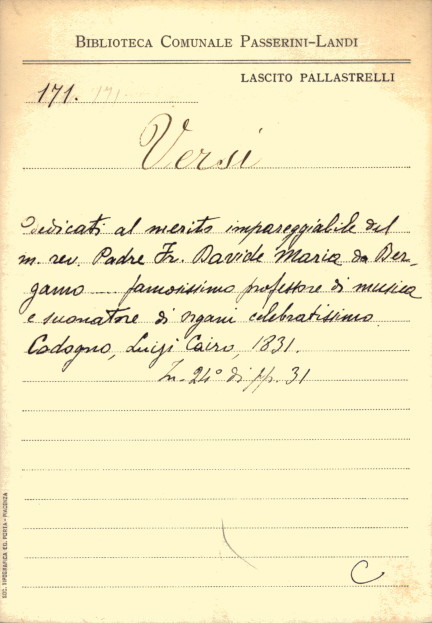 BIBLIOTECA COMUNALE PASSERINI-LANDI
LASCITO PALLASTRELLI
171. 171.
Versi
Dedicati al merito impareggiabile del
m. rev. Padre Fr. Davide Maria da Ber-
gamo .... famosissimo professore di musica
e suonatore di organi celebratissimo.
Codogno, Luigi Cairo, 1831.
In-24° di pp. 31
C
SOC. TIPOGRAFICA ED. PORTA - PIACENZA